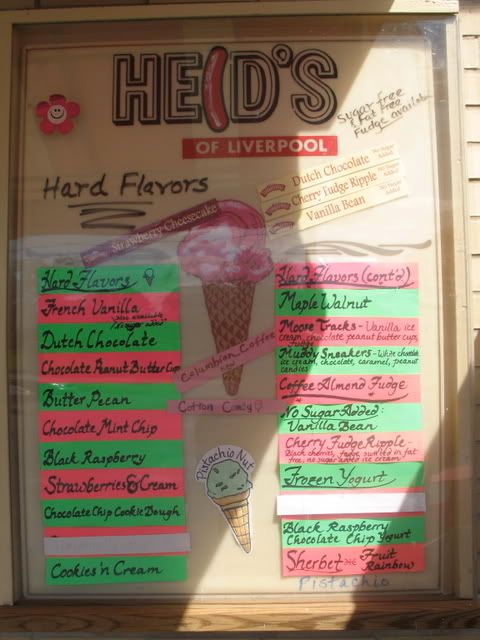 HEID'S
OF LIVERPOOL
Sugar free
& Fat Free
Fudge available
Hard Flavors
Dutch Chocolate No Sugar Added
Cherry Fudge Ripple No Sugar Added
Vanilla Bean
Strawberry Cheesecake
Columbian Coffee
Cotton Candy
Pistachio Nut
Hard Flavors
French Vanilla
Dutch Chocolate
Chocolate Peanut Butter Cup
Butter Pecan
Chocolate Mint Chip
Black Raspberry
Strawberries & Cream
Chocolate Chip Cookie Dough
Cookies 'n Cream
Hard Flavors (cont'd)
Maple Walnut
Moose Tracks - Vanilla ice
cream, chocolate peanut butter cups,
fudge
Muddy Sneakers - White chocolate
ice cream, chocolate, caramel, peanut
candies
Coffee Almond Fudge
No Sugar Added:
Vanilla Bean
Cherry Fudge Ripple -
Black cherries, fudge swirled in fat
free, no sugar added ice cream
Frozen Yogurt
Black Raspberry
Chocolate Chip Yogurt
Sherbet Fruit
Rainbow
Pistachio